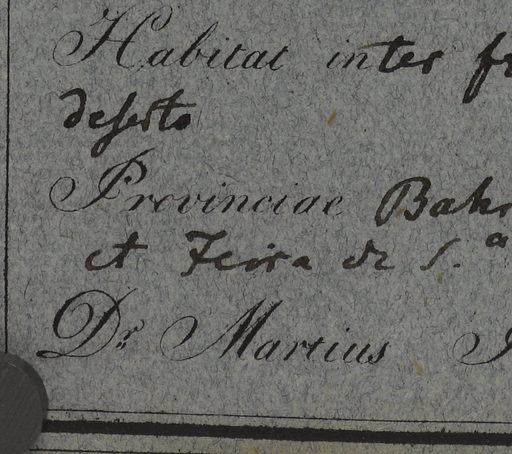 Habitat inter
deserto
Provinciae
et Feira de S.a
Dr. Martius